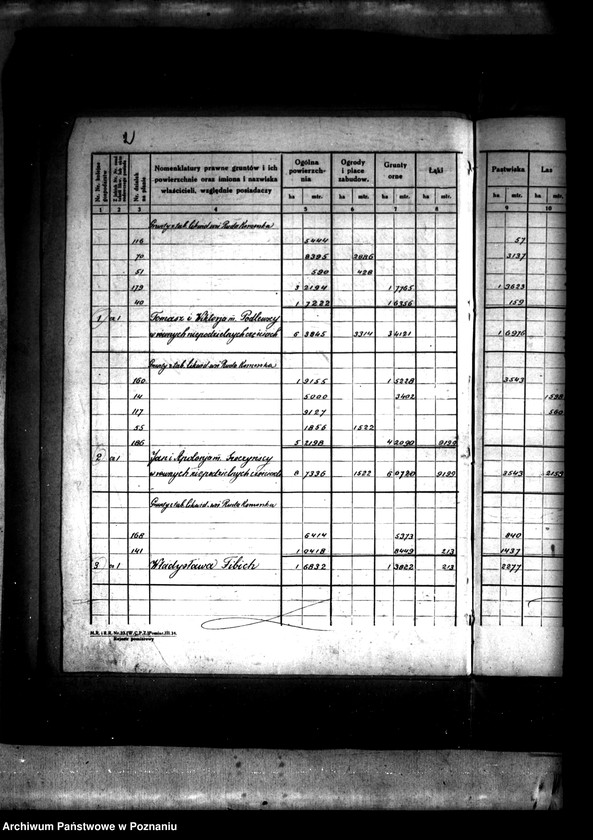 2
Nr. Nr. bieżące gospodarstw
Nr. działek na planie
Nomenklatury prawne gruntów i ich powierzchnie oraz imiona i nazwiska właścicieli, względnie posiadaczy
Ogólna powierzchnia
Ogrody i place zabudow.
Grunty orne
Łąki
Pastwiska
Las
ha mtr. ha mtr. ha mtr. ha mtr. ha mtr. ha mtr.
1 2 3 4 5 6 7 8 9 10
Grunty z tab. likwid. wsi Ruda Komorska
116 5444 57
70 8395 2886 3137
51 590 428
179 3 2194 1 7765 1 3623
40 1 7222 1 6356 159
1 a1 Tomasz i Wiktorja m. Podlewscy
w równych niepodzielnych częściach 6 3845 3314 3 4121 1 6976
Grunty z tab. likwid. wsi Ruda Komorska
160 1 9155 1 5228 3543
14 5000 3402 1598
117 9127 560
55 1856 1522
186 5 2198 4 2090 9199
2 a1 Jan i Apolonja m.
w równych niepodzielnych częściach 8 7336 1522 6 0720 9199 3543 2158
Grunty z tab. likwid. wsi Ruda Komorska
168 6414 5373 840
141 1 0418 8449 213 1437
3 a1 Władysława Fibich 1 6832 1 3822 213 2277
Rejestr pomiarowy
Archiwum Państwowe w Poznaniu